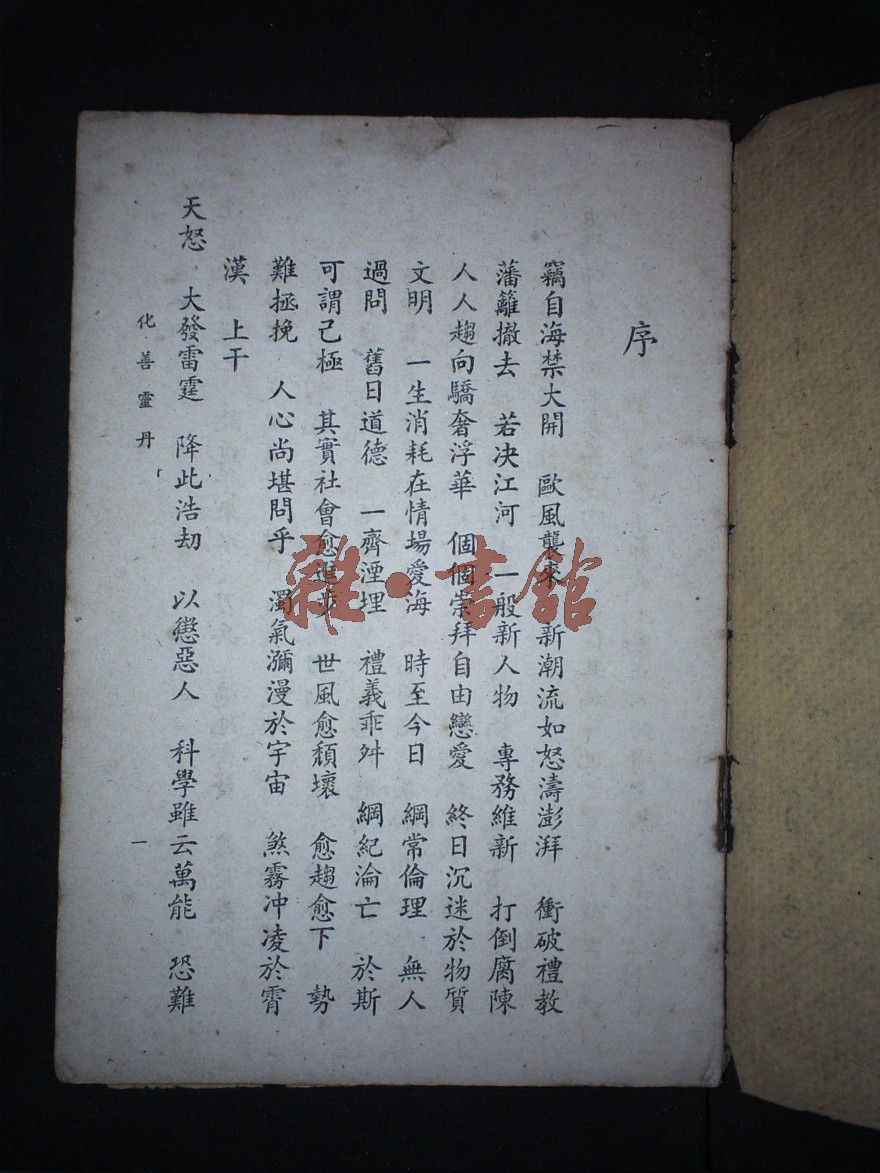 序
竊自海禁大開 歐風襲來 新潮流如怒濤澎湃 衝破禮教
藩籬撤去 若决江河 一般新人物 專務維新 打倒腐陳
人人趨向驕奢浮華 個個崇拜自由戀愛 終日沉迷於物質
文明 一生消耗在情場愛海 時至今日 綱常倫理 無人
過問 舊日道德 一齊湮埋 禮義乖舛 綱紀淪亡 於斯
可謂己極 其實社會愈進步 世風愈頹壞 愈趨愈下 勢
難拯挽 人心尚堪問乎 濁氣瀰漫於宇宙 煞霧冲凌於霄
漢 上干
天怒 大發雷霆 降此浩劫 以懲惡人 科學雖云萬能 恐難
化善靈丹
一
雜·書館